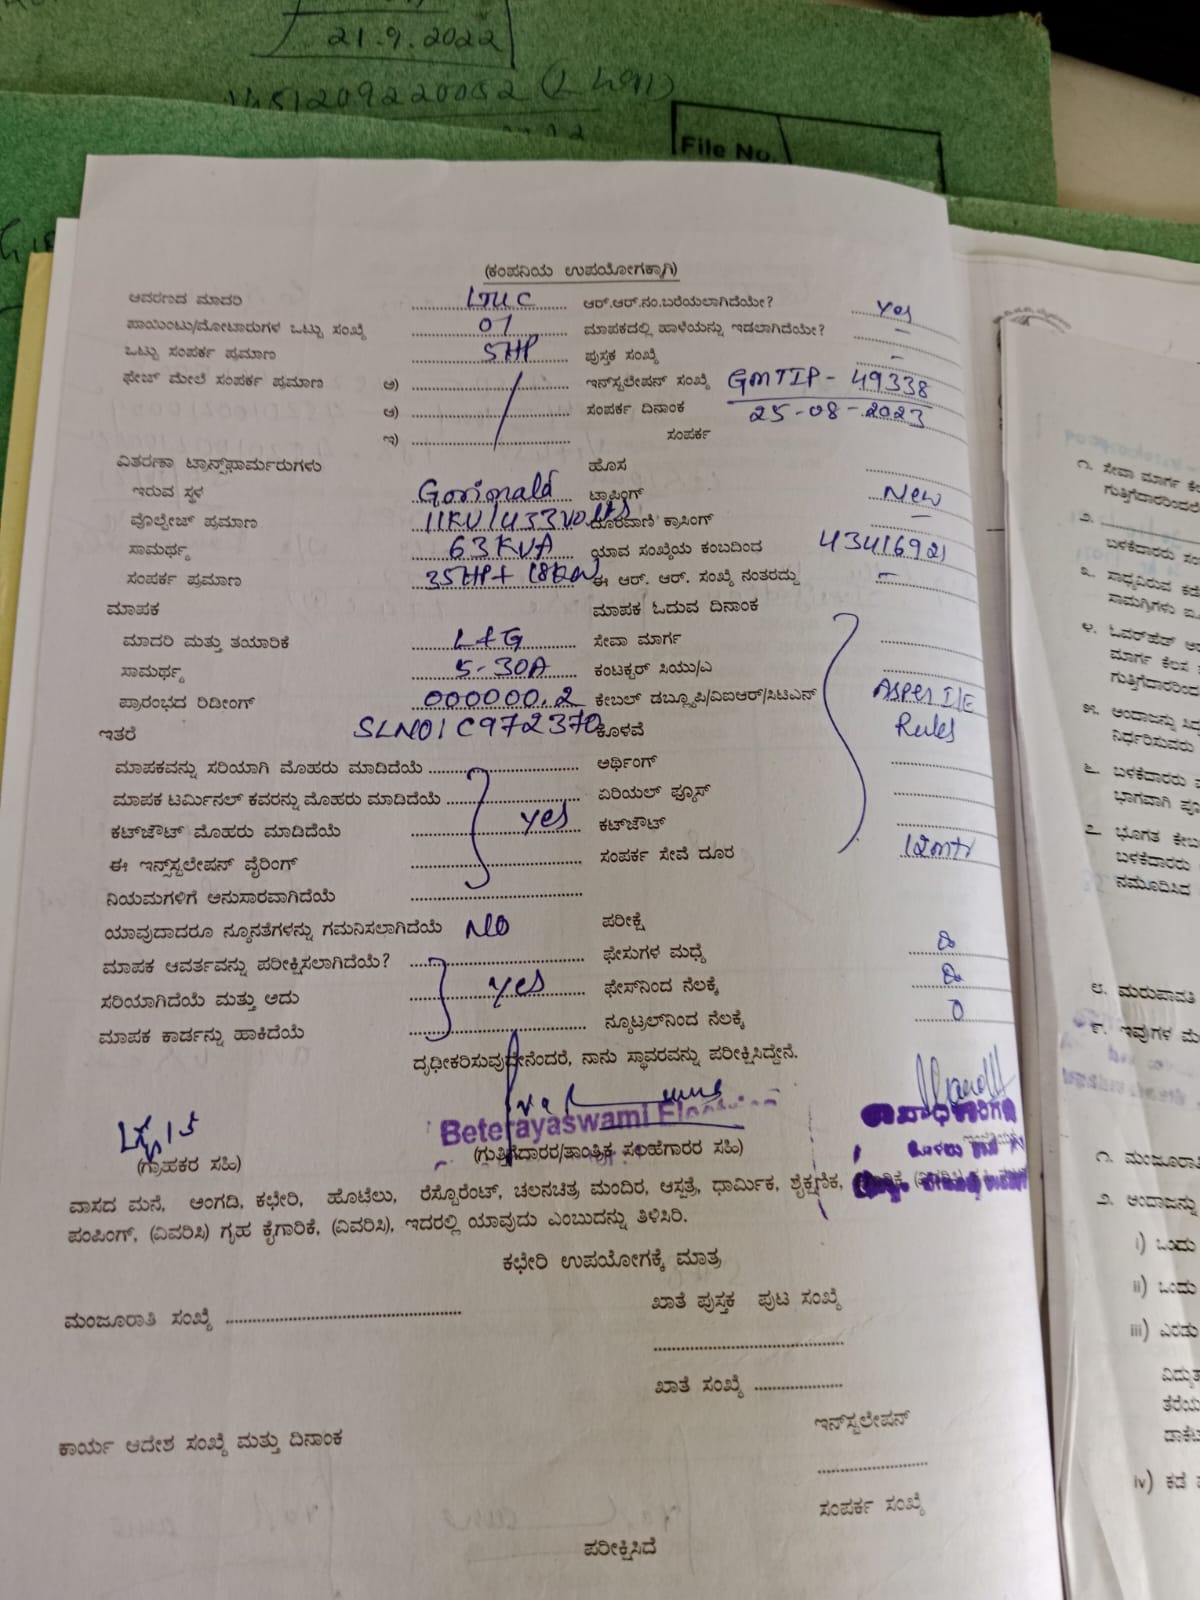 21.9.2022
File No.
(ಕಂಪನಿಯ ಉಪಯೋಗಕ್ಕಾಗಿ)
ಆವರಣದ ಮಾದರಿ ಆರ್.ಆರ್.ನಂ.ಬರೆಯಲಾಗಿದೆಯೇ? Yes
ಪಾಯಿಂಟು/ಮೋಟಾರುಗಳ ಒಟ್ಟು ಸಂಖ್ಯೆ 01 ಮಾಪಕದಲ್ಲಿ ಹಾಳೆಯನ್ನು ಇಡಲಾಗಿದೆಯೇ? –
ಒಟ್ಟು ಸಂಪರ್ಕ ಪ್ರಮಾಣ 5HP ಪುಸ್ತಕ ಸಂಖ್ಯೆ –
ಫೇಜ್ ಮೇಲೆ ಸಂಪರ್ಕ ಪ್ರಮಾಣ ಅ) ಇನ್‌ಸ್ಟಲೇಷನ್ ಸಂಖ್ಯೆ GMTIP - 49338
ಆ) ಸಂಪರ್ಕ ದಿನಾಂಕ 25-08-2023
ಇ) ಸಂಪರ್ಕ
ವಿತರಣಾ ಟ್ರಾನ್ಸ್‌ಫಾರ್ಮರುಗಳು ಹೊಸ
ಇರುವ ಸ್ಥಳ ಟ್ಯಾಪಿಂಗ್ New
ವೊಲ್ಟೇಜ್ ಪ್ರಮಾಣ 11KV/433Volts ದೂರವಾಣಿ ಕ್ರಾಸಿಂಗ್ –
ಸಾಮರ್ಥ್ಯ 63KVA ಯಾವ ಸಂಖ್ಯೆಯ ಕಂಬದಿಂದ 43416921
ಸಂಪರ್ಕ ಪ್ರಮಾಣ 35HP+ 18KW ಈ ಆರ್. ಆರ್. ಸಂಖ್ಯೆ ನಂತರದ್ದು –
ಮಾಪಕ ಮಾಪಕ ಓದುವ ದಿನಾಂಕ
ಮಾದರಿ ಮತ್ತು ತಯಾರಿಕೆ L+G ಸೇವಾ ಮಾರ್ಗ
ಸಾಮರ್ಥ್ಯ 5-30A ಕಂಟಕ್ಟರ್ ಸಿಯು/ಎ
ಪ್ರಾರಂಭದ ರಿಡೀಂಗ್ 000000.2 ಕೇಬಲ್ ಡಬ್ಲ್ಯೂಪಿ/ಎಐಆರ್/ಸಿಟಿಎನ್ As per I/E
ಇತರೆ SLNO/C972370 ಕೊಳವೆ Rules
ಮಾಪಕವನ್ನು ಸರಿಯಾಗಿ ಮೊಹರು ಮಾಡಿದೆಯೆ ಅರ್ಥಿಂಗ್
ಮಾಪಕ ಟರ್ಮಿನಲ್ ಕವರನ್ನು ಮೊಹರು ಮಾಡಿದೆಯೆ ಏರಿಯಲ್ ಫ್ಯೂಸ್
ಕಟ್‌ಔಟ್ ಮೊಹರು ಮಾಡಿದೆಯೆ yes ಕಟ್‌ಔಟ್
ಈ ಇನ್‌ಸ್ಟಲೇಷನ್ ವೈರಿಂಗ್ ಸಂಪರ್ಕ ಸೇವೆ ದೂರ 12mtr
ನಿಯಮಗಳಿಗೆ ಅನುಸಾರವಾಗಿದೆಯೆ
ಯಾವುದಾದರೂ ನ್ಯೂನತೆಗಳನ್ನು ಗಮನಿಸಲಾಗಿದೆಯೆ NO ಪರೀಕ್ಷೆ
ಮಾಪಕ ಆವರ್ತವನ್ನು ಪರೀಕ್ಷಿಸಲಾಗಿದೆಯೆ? ಫೇಸುಗಳ ಮಧ್ಯೆ
ಸರಿಯಾಗಿದೆಯೆ ಮತ್ತು ಅದು yes ಫೇಸ್‌ನಿಂದ ನೆಲಕ್ಕೆ
ಮಾಪಕ ಕಾರ್ಡನ್ನು ಹಾಕಿದೆಯೆ ನ್ಯೂಟ್ರಲ್‌ನಿಂದ ನೆಲಕ್ಕೆ 0
ದೃಢೀಕರಿಸುವುದೇನೆಂದರೆ, ನಾನು ಸ್ಥಾವರವನ್ನು ಪರೀಕ್ಷಿಸಿದ್ದೇನೆ.
Beterayaswami
(ಗ್ರಾಹಕರ ಸಹಿ) (ಗುತ್ತಿಗೆದಾರರ/ತಾಂತ್ರಿಕ ಸಲಹೆಗಾರರ ಸಹಿ)
ವಾಸದ ಮನೆ, ಅಂಗಡಿ, ಕಛೇರಿ, ಹೊಟೆಲು, ರೆಸ್ಟೊರೆಂಟ್, ಚಲನಚಿತ್ರ ಮಂದಿರ, ಆಸ್ಪತ್ರೆ, ಧಾರ್ಮಿಕ, ಶೈಕ್ಷಣಿಕ,
ಪಂಪಿಂಗ್, (ವಿವರಿಸಿ) ಗೃಹ ಕೈಗಾರಿಕೆ, (ವಿವರಿಸಿ), ಇದರಲ್ಲಿ ಯಾವುದು ಎಂಬುದನ್ನು ತಿಳಿಸಿರಿ.
ಕಛೇರಿ ಉಪಯೋಗಕ್ಕೆ ಮಾತ್ರ
ಮಂಜೂರಾತಿ ಸಂಖ್ಯೆ ಖಾತೆ ಪುಸ್ತಕ ಪುಟ ಸಂಖ್ಯೆ
ಖಾತೆ ಸಂಖ್ಯೆ
ಇನ್‌ಸ್ಟಲೇಷನ್
ಕಾರ್ಯ ಆದೇಶ ಸಂಖ್ಯೆ ಮತ್ತು ದಿನಾಂಕ
ಸಂಪರ್ಕ ಸಂಖ್ಯೆ
ಪರೀಕ್ಷಿಸಿದೆ
೧. ಸೇವಾ ಮಾರ್ಗ
೨.
೩. ಸಾಧ್ಯವಿರುವ
೪. ಓವರ್‌ಹೆಡ್
ಮಾರ್ಗ ಕೆಲಸ
೫. ಅಂದಾಜನ್ನು
ನಿರ್ಧರಿಸುವರು
೬. ಬಳಕೆದಾರರು
ಭಾಗವಾಗಿ
೭. ಭೂಗತ
ಬಳಕೆದಾರರು
ನಮೂದಿಸಿದ
೮. ಮರುಪಾವತಿ
೯. ಇವುಗಳ
೧.
೨. ಅಂದಾಜನ್ನು
i) ಒಂದು
ii) ಒಂದು
iii) ಎರಡು
iv) ಕಡೆ